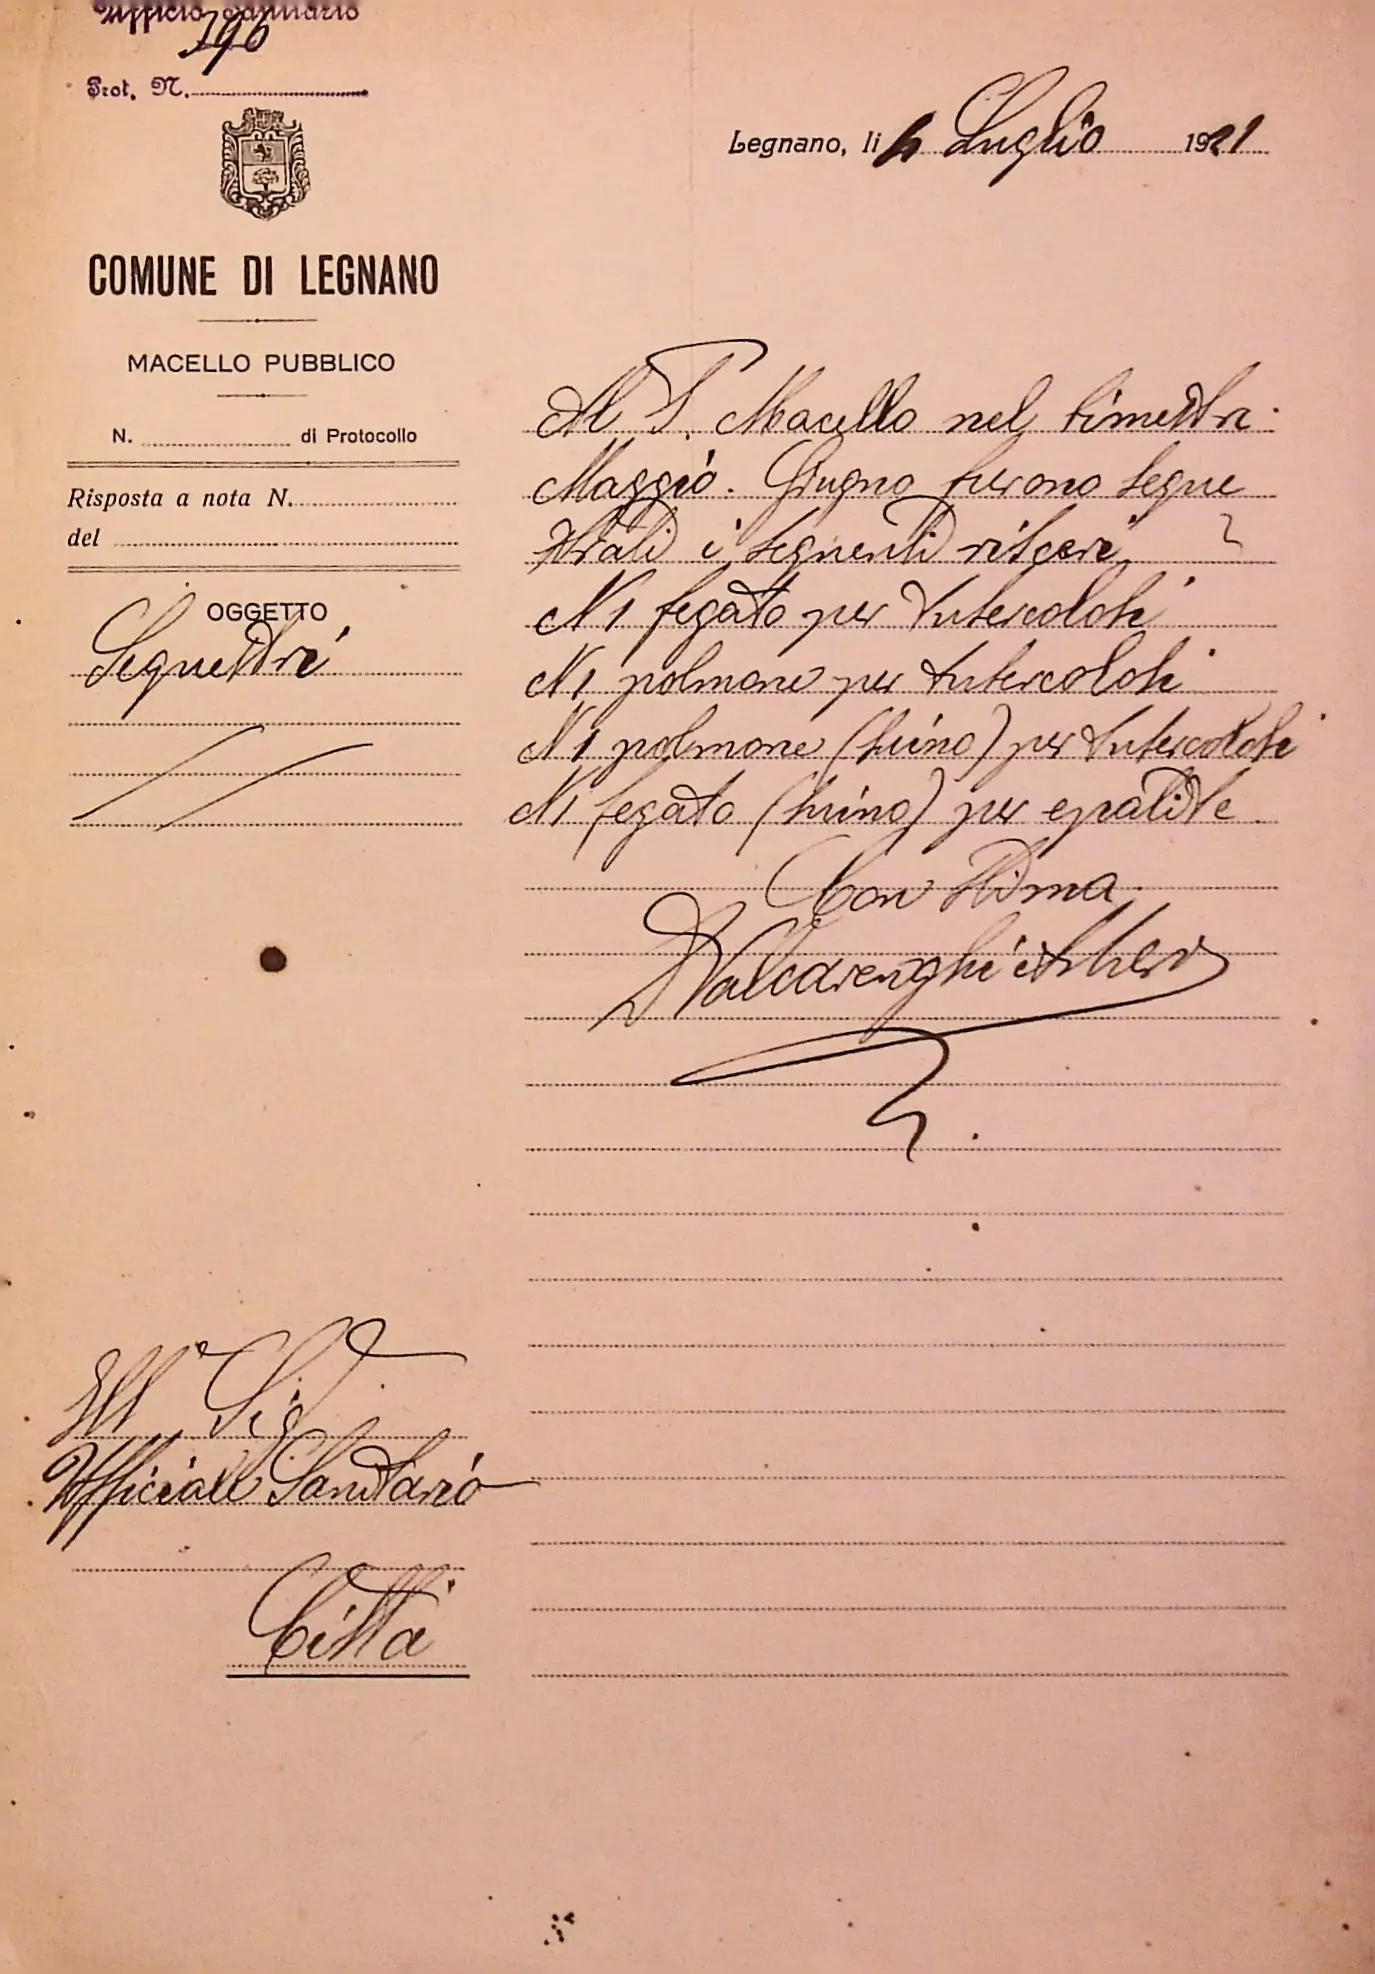 Ufficio Sanitario
196
Prot. N.
COMUNE DI LEGNANO
MACELLO PUBBLICO
N. di Protocollo
Risposta a nota N.
del
OGGETTO
Sequestri
Ill.º Sig.
Ufficiale Sanitario
Città
Legnano, li Luglio 1921
Al P. Macello nel bimestre
Maggio. Giugno furono seque
strati i seguenti visceri
N 1 fegato per tubercolosi
N 1 polmone per tubercolosi
N 1 polmone (suino) per tubercolosi
N 1 fegato (suino) per epatite
Con stima